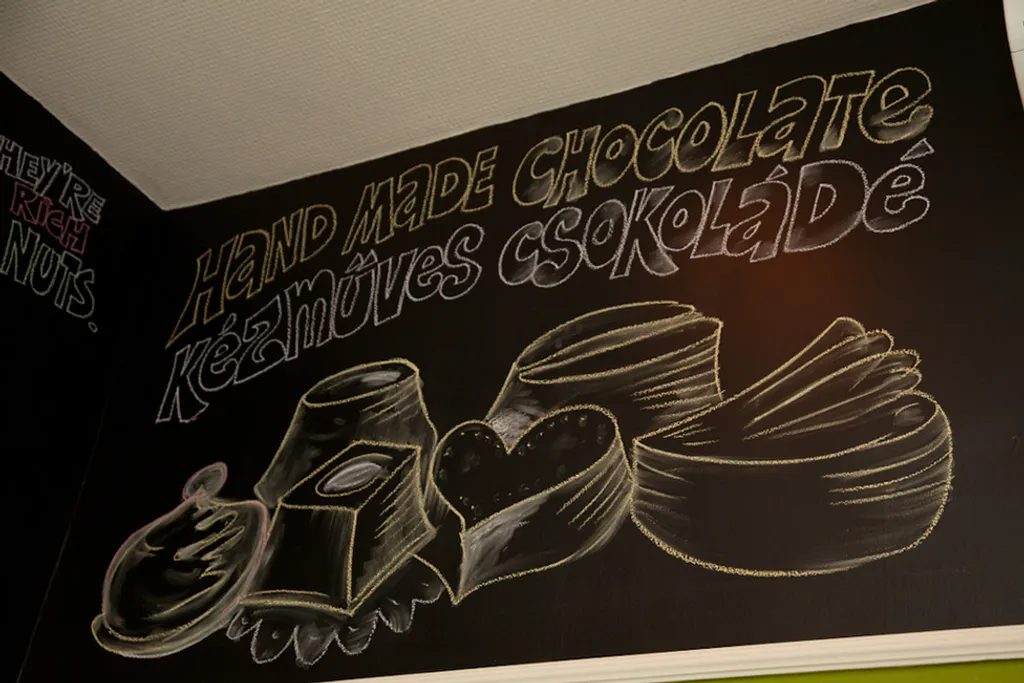 HEY'RE
RICH
NUTS.
HaND MaDE CHOCOLaTe
KézMűVes CSOKOLáDé